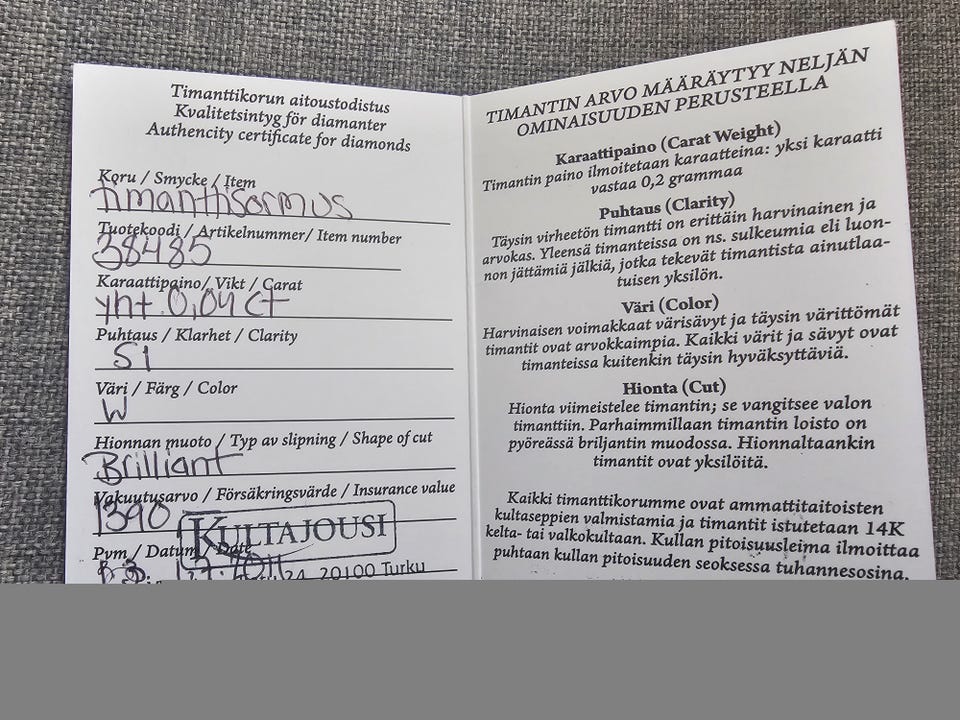 Timanttikorun aitoustodistus
Kvalitetsintyg för diamanter
Authencity certificate for diamonds
Koru / Smycke / Item
Timanttisormus
Tuotekoodi / Artikelnummer/ Item number
38485
Karaattipaino/ Vikt / Carat
yht. 0,04 ct
Puhtaus / Klarhet / Clarity
SI
Väri / Färg / Color
W
Hionnan muoto / Typ av slipning / Shape of cut
Brilliant
Vakuutusarvo / Försäkringsvärde / Insurance value
1390
KULTAJOUSI
Pvm / Datum / Date
24, 20100 Turku
TIMANTIN ARVO MÄÄRÄYTYY NELJÄN
OMINAISUUDEN PERUSTEELLA
Karaattipaino (Carat Weight)
Timantin paino ilmoitetaan karaatteina: yksi karaatti
vastaa 0,2 grammaa
Puhtaus (Clarity)
Täysin virheetön timantti on erittäin harvinainen ja
arvokas. Yleensä timanteissa on ns. sulkeumia eli luon-
non jättämiä jälkiä, jotka tekevät timantista ainutlaa-
tuisen yksilön.
Väri (Color)
Harvinaisen voimakkaat värisävyt ja täysin värittömät
timantit ovat arvokkaimpia. Kaikki värit ja sävyt ovat
timanteissa kuitenkin täysin hyväksyttäviä.
Hionta (Cut)
Hionta viimeistelee timantin; se vangitsee valon
timanttiin. Parhaimmillaan timantin loisto on
pyöreässä briljantin muodossa. Hionnaltaankin
timantit ovat yksilöitä.
Kaikki timanttikorumme ovat ammattitaitoisten
kultaseppien valmistamia ja timantit istutetaan 14K
kelta- tai valkokultaan. Kullan pitoisuusleima ilmoittaa
puhtaan kullan pitoisuuden seoksessa tuhannesosina.